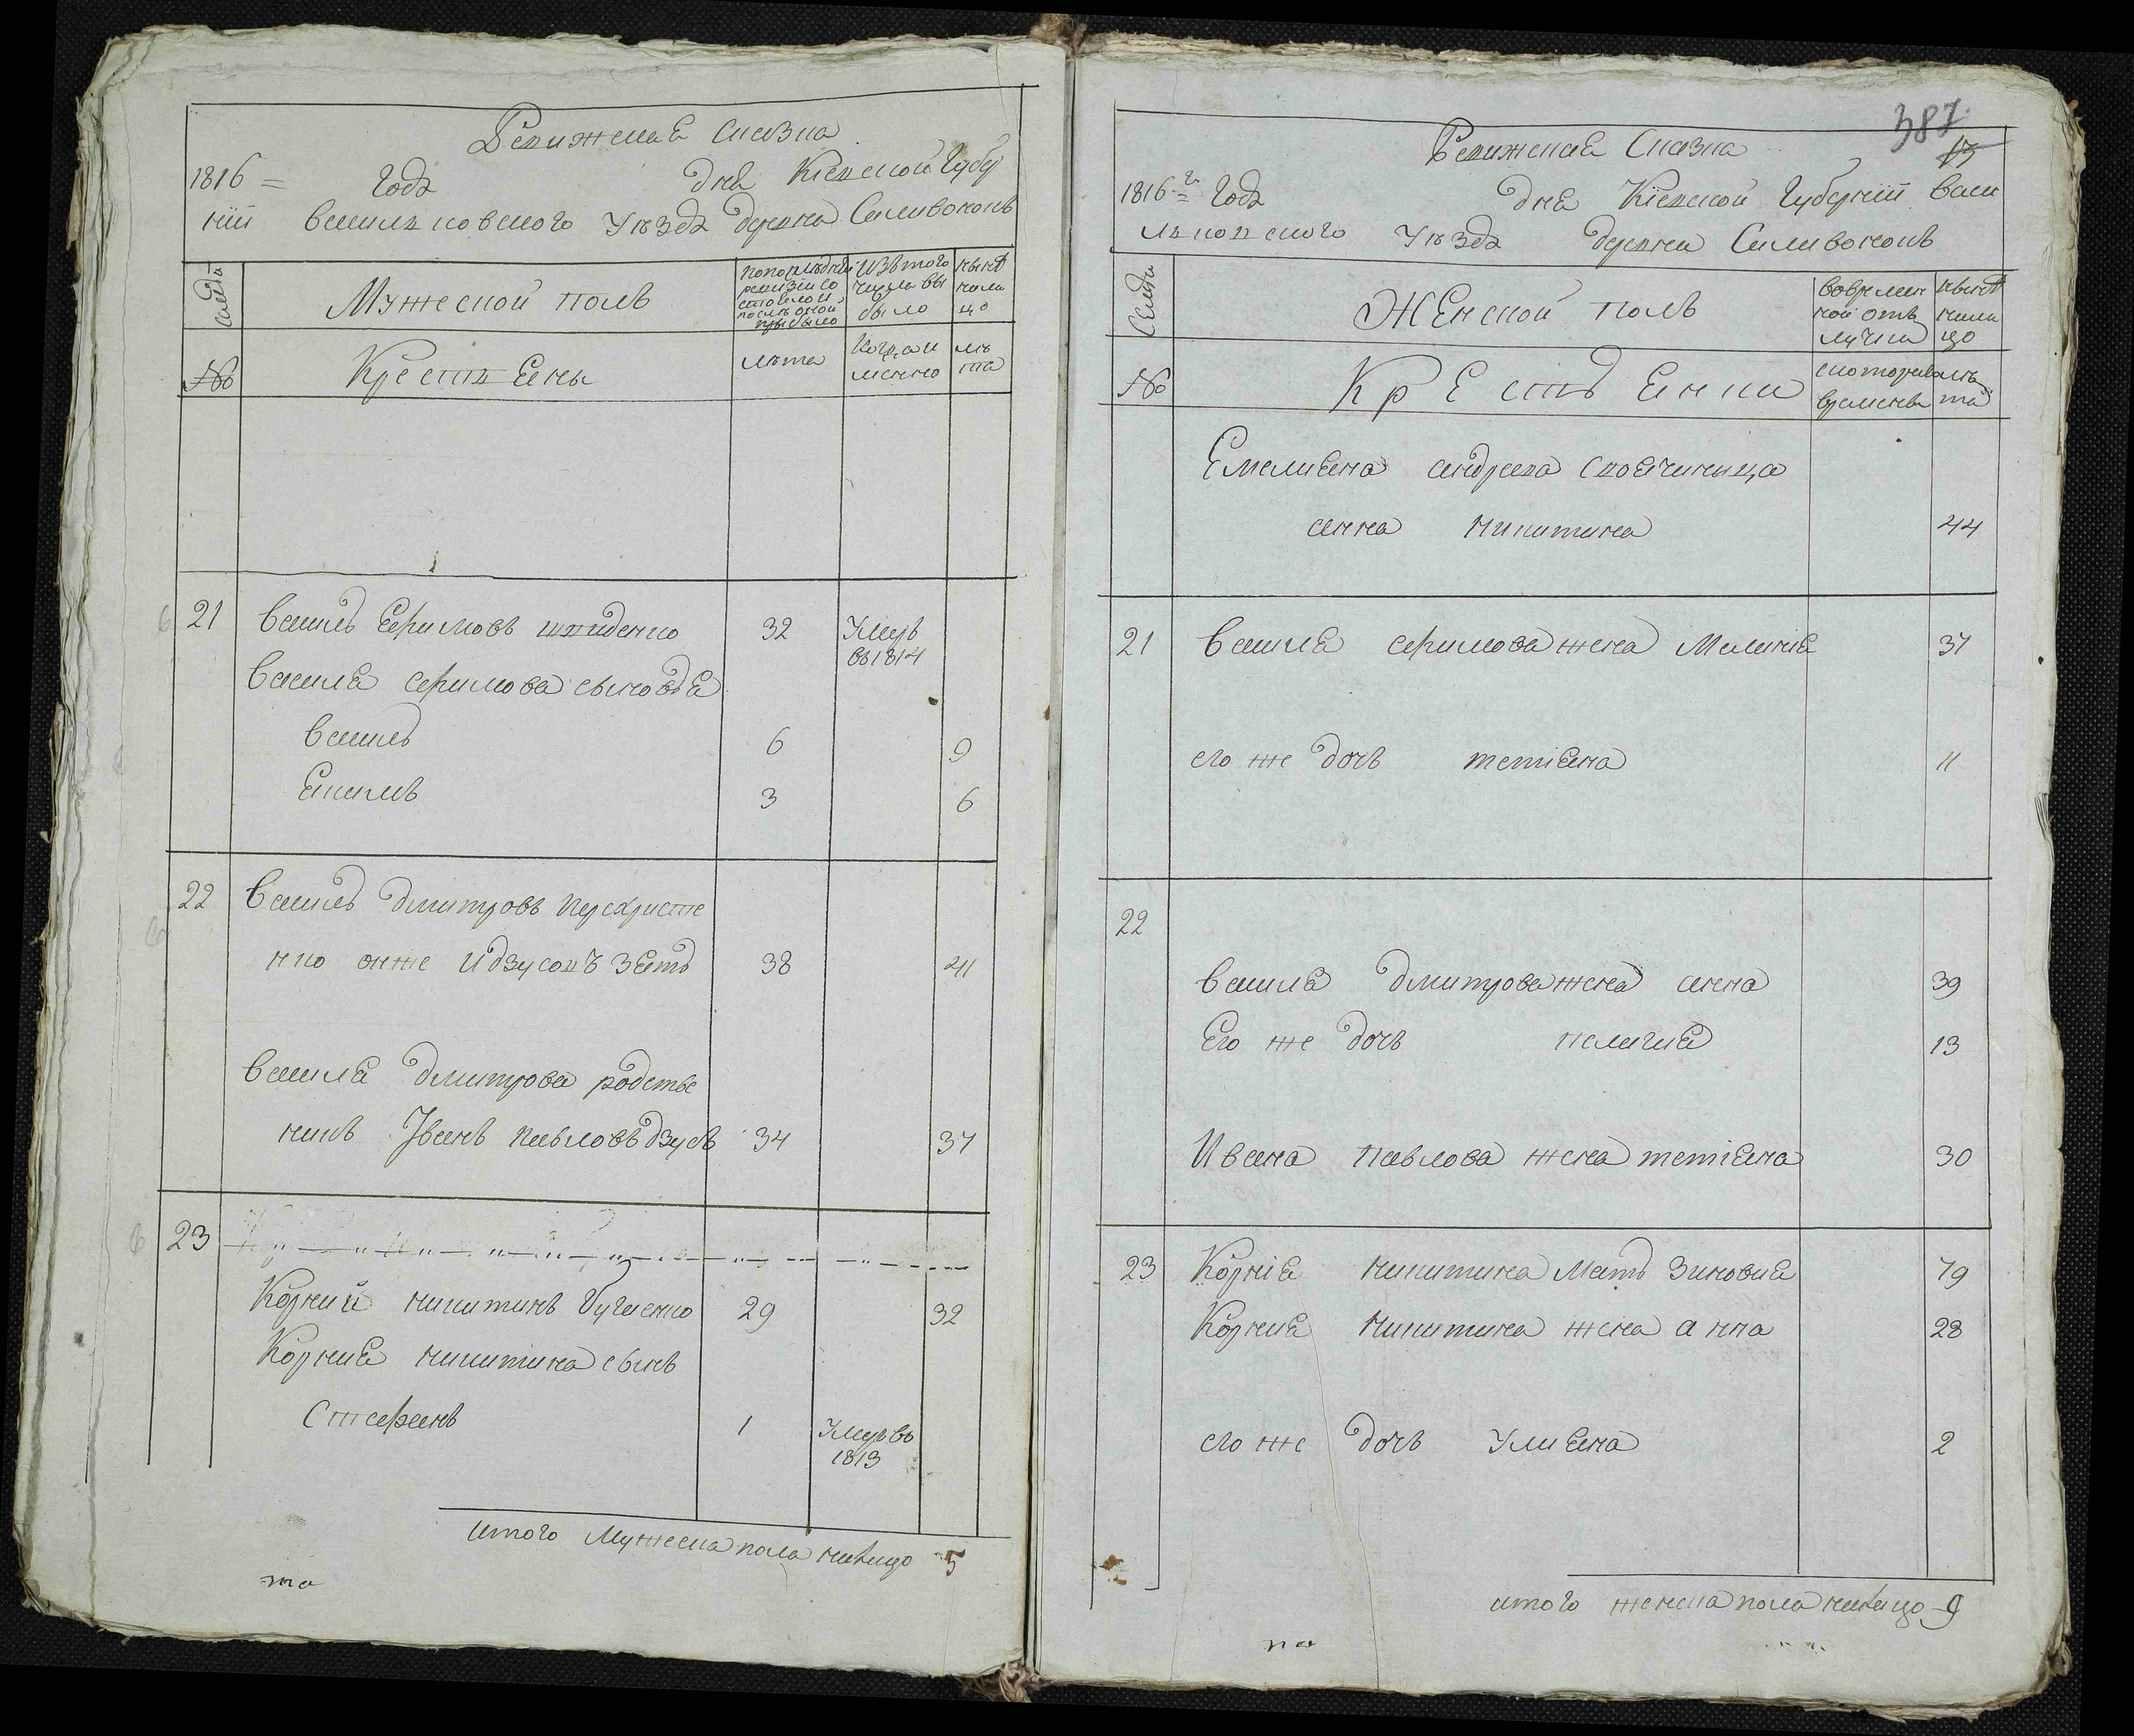 Ревижская сказка
1816 = Года дня Кіевской Губер
ніи василковского Уезда деревни Саливонокъ
Семьи
Мужеской полъ
По последней ревизіи состояло и после оной прибыло
Изъ того числа выбыло
ныне на лицо
№
Крестьяны
лета
Когда именно
лета
21 василь Ефимовъ 32 Умеръ
въ 1814
василя ефимова сыновья
василь 6 9
Екимъ 3 6
22 василь дмитровъ Перехристе
нко онже и дзусовъ зять 38 41
василя дмитрова родстве
никъ Іванъ павловъ дзусь 34 37
23
Корний никитинъ Бугаенко 29 32
Корния никитина сынъ
Стефанъ 1 Умеръ въ
1813
итого Мужеска пола налицо 5
на
387
13
Ревижская Сказка
1816 = г. Года дня Кіевской Губерніи васи
лковского Уезда деревни Саливонокъ
Семьи
Женской полъ
во времянной отлучки
ныне на лицо
№
Крестьянки
с которого времени
лета
Емелияна андреева своячиныца
анна никитина 44
21 василя ефимова жена Меланія 37
его же дочь тетіяна 11
22
василя дмитрова жена анна 39
Его же дочь пелагия 13
Ивана павлова жена тетіяна 30
23 Корнія никитина мать Зиновия 79
Корния никитина жена анна 28
его же дочь улияна 2
итого женска пола налицо 9
на